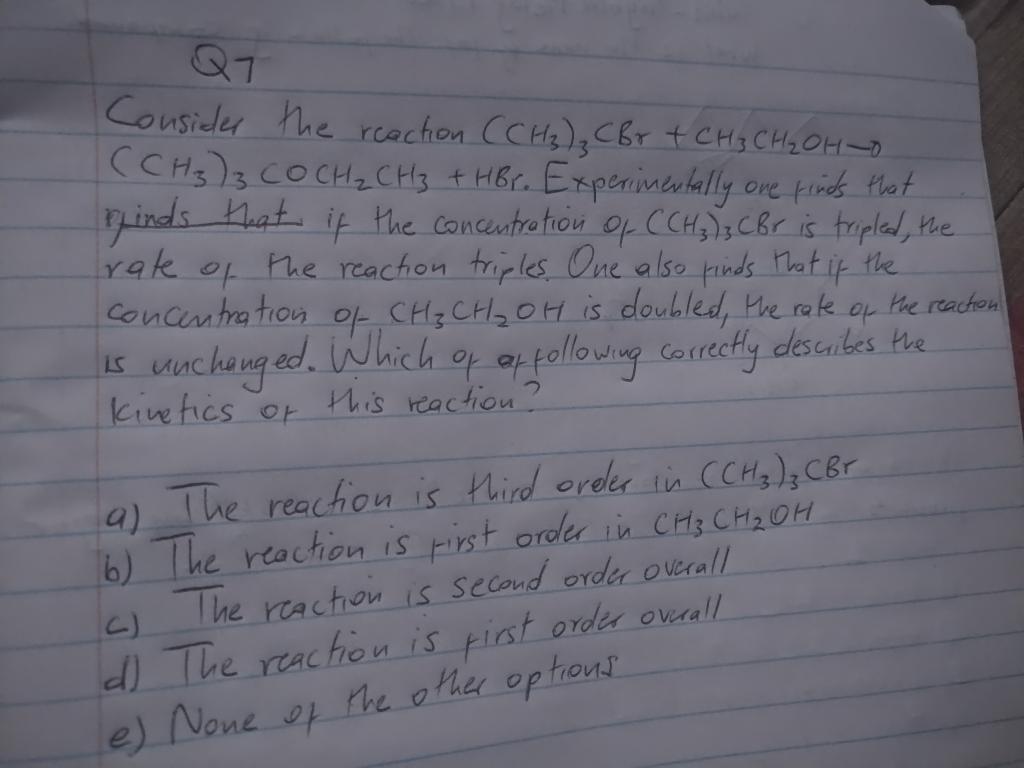 Q7
Consider the reaction (CH3)3CBr + CH3CH2OH→
(CH3)3COCH2CH3 + HBr. Experimentally one finds that
finds that if the concentration of (CH3)3CBr is tripled, the
rate of the reaction triples. One also finds that if the
concentration of CH3CH2OH is doubled, the rate of the reaction
is unchanged. Which of of following correctly describes the
kinetics of this reaction?
a) The reaction is third order in (CH3)3CBr
b) The reaction is first order in CH3CH2OH
c) The reaction is second order overall
d) The reaction is first order overall
e) None of the other options